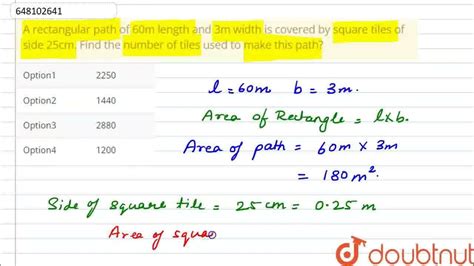 648102641
A rectangular path of 60m length and 3m width is covered by square tiles of
side 25cm. Find the number of tiles used to make this path?
Option1 2250
Option2 1440
Option3 2880
Option4 1200
l = 60m b = 3m.
Area of Rectangle = l x b.
Area of path = 60m x 3m
= 180m².
Side of square tile = 25cm = 0.25m
Area of squa
doubtnut